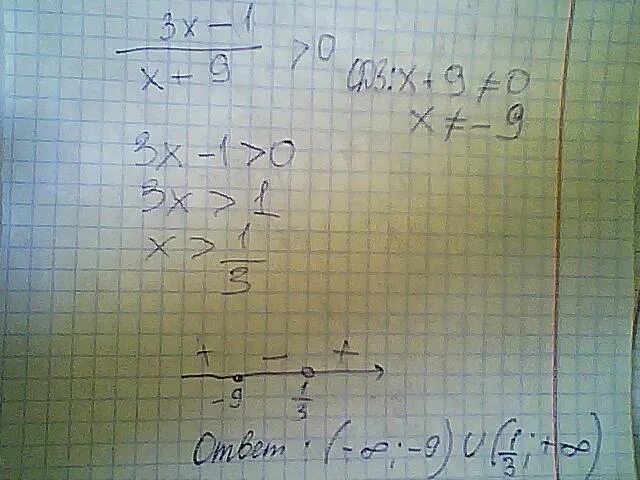 3x - 1 / x + 9 > 0
ОДЗ: x + 9 ≠ 0
x ≠ - 9
3x - 1 > 0
3x > 1
x > 1/3
+ - +
-9 1/3
Ответ: (-∞; -9) ∪ (1/3; +∞)